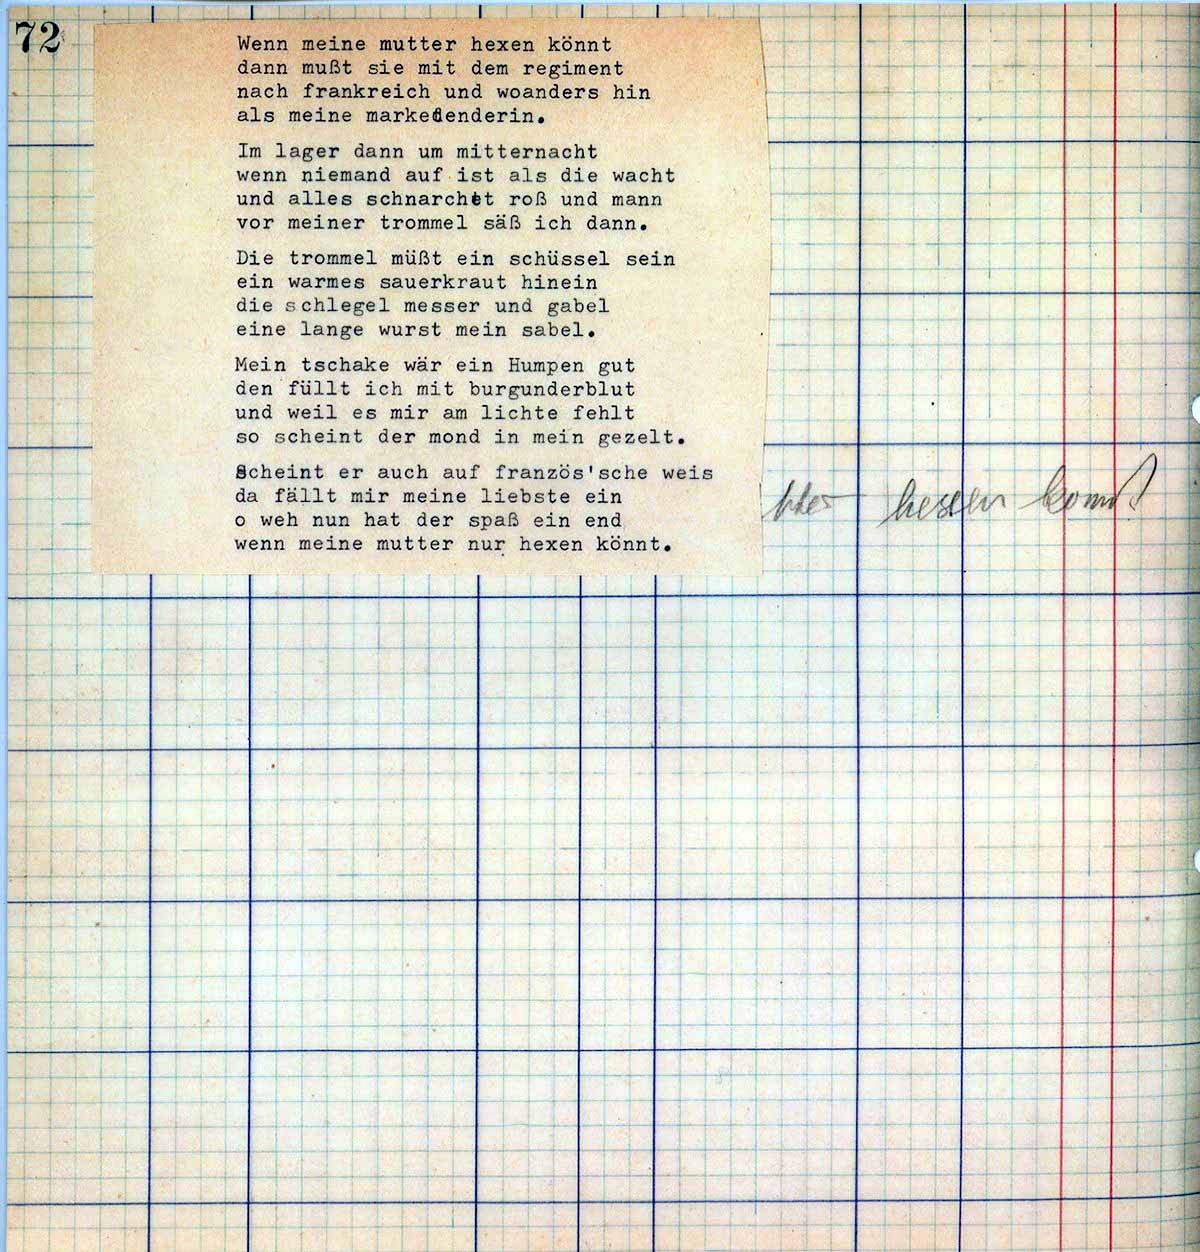 72
Wenn meine mutter hexen könnt
dann mußt sie mit dem regiment
nach frankreich und woanders hin
als meine markedenderin.
Im lager dann um mitternacht
wenn niemand auf ist als die wacht
und alles schnarchet roß und mann
vor meiner trommel säß ich dann.
Die trommel müßt ein schüssel sein
ein warmes sauerkraut hinein
die schlegel messer und gabel
eine lange wurst mein sabel.
Mein tschake wär ein Humpen gut
den füllt ich mit burgunderblut
und weil es mir am lichte fehlt
so scheint der mond in mein gezelt.
Scheint er auch auf französ'sche weis
da fällt mir meine liebste ein
o weh nun hat der spaß ein end
wenn meine mutter nur hexen könnt.